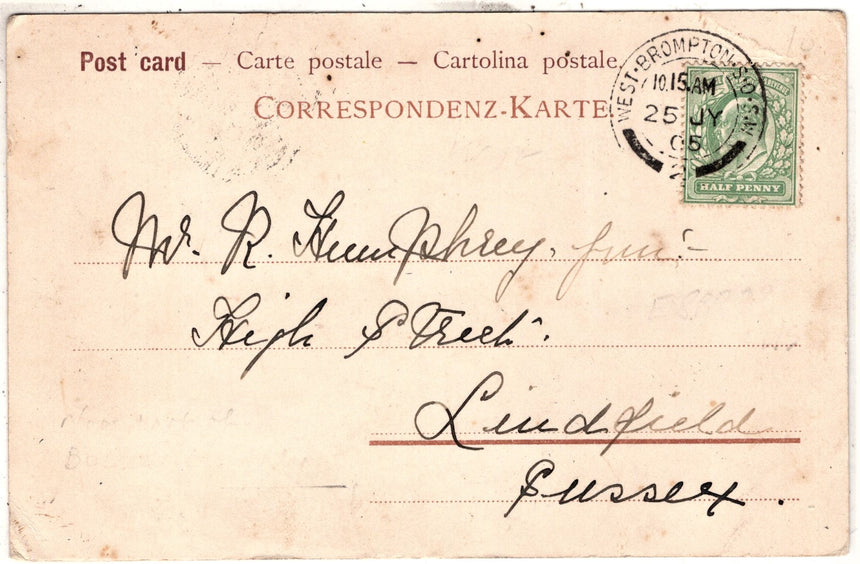 Post card — Carte postale — Cartolina postale
CORRESPONDENZ-KARTE
WEST-BROMPTON·S.O·S.W.
10.15.AM
25 JY
05
2
HALF PENNY
Mr. R. Humphrey, Junr:-
High Street.
Lindfield
Sussex.